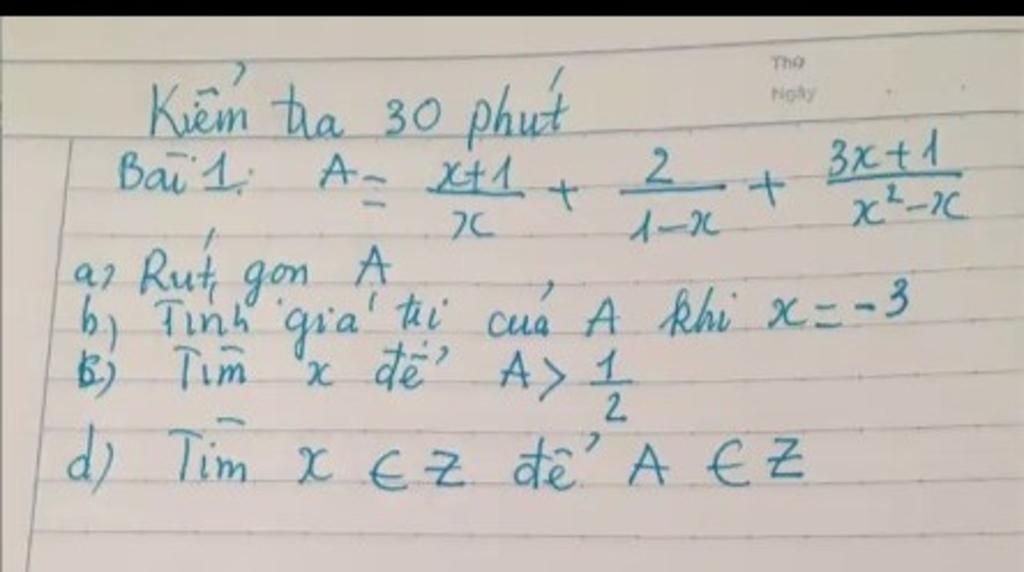 Thứ
Ngày
Kiểm tra 30 phút
Bài 1: A = \frac{x+1}{x} + \frac{2}{1-x} + \frac{3x+1}{x^2-x}
a) Rút gọn A
b) Tính giá trị của A khi x = -3
c) Tìm x để A > \frac{1}{2}
d) Tìm x ∈ Z để A ∈ Z